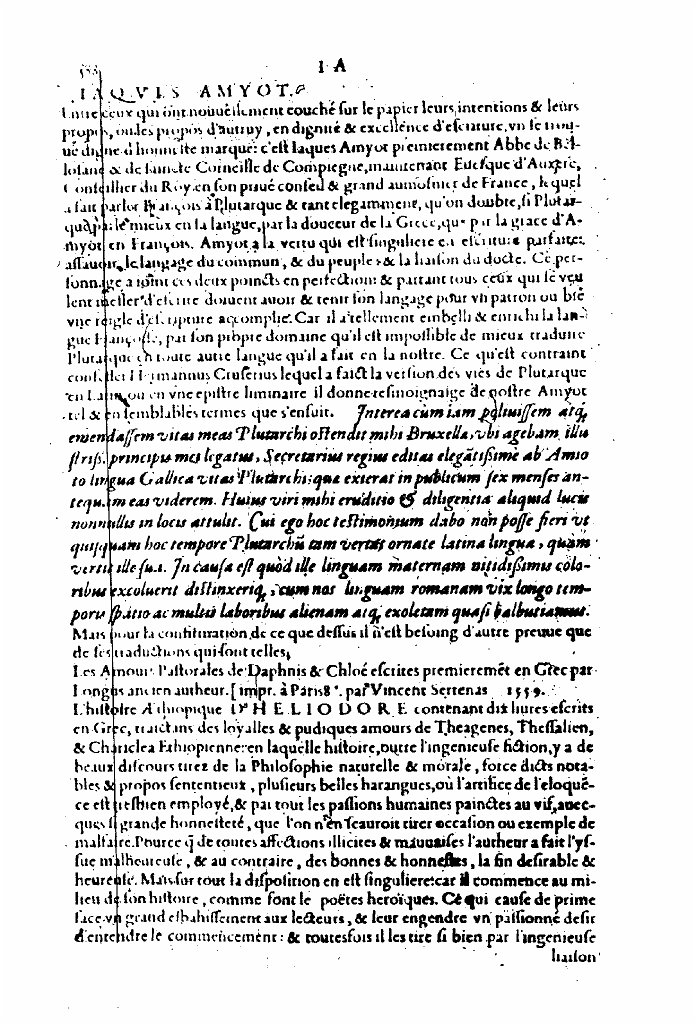 I A
IAQVES AMYOT.
Entre ceux qui ont nouuellement couché sur le papier leurs intentions & leurs
propos, ou les propos d'autruy, en dignité & excellence d'escriture, vn se trou-
ué digne d'honneste marque: c'est Iaques Amyot premierement Abbé de Bel-
losane & de saincte Corneille de Compiegne, maintenant Euesque d'Auxere,
Conseillier du Roy en son priué conseil & grand aumosnier de France, lequel
a fait parler François à Plutarque & tant elegamment, qu'on doubte, si Plutar-
que parle mieux en la langue, par la douceur de la Grece, que par la grace d'A-
myot en François. Amyot a la vertu qui est singuliere en escriture parfaite:
assauoir, le langage du commun, & du peuple, & la liaison du docte. Ce per-
sonnage a ioint ces deux poincts en perfection: & partant tous ceux qui se veu
lent mesler d'escrire doiuent auoir & tenir son langage pour vn patron ou bié
vne reigle d'escripture accomplie. Car il a tellement embelli & enrichi la lan-
gue Françoise, par son propre domaine qu'il est impossible de mieux traduire
Plutarque en toute autre langue qu'il a fait en la nostre. Ce qu'est contraint
confesser Hermannus Cruserius lequel a faict la version des vies de Plutarque
en Latin, ou en vne epistre liminaire il donne tesmoignaige de nostre Amyot
tel & en semblables termes que s'ensuit. Interea cùm iam poliuissem atq́
emendassem vitas meas Plutarchi ostendit mihi Bruxella, vbi agebam illu
striss. principis mei legatus, Secretarius regius editas elegãtissimè ab Amio
to lingua Gallica vitas Plutarchi: quæ exierat in publicum sex menses an-
tequam meas viderem. Huius viri mihi eruditio & diligentia aliquid lucis
nonnullis in locis attulit. Cui ego hoc testimonium dabo non posse fieri vt
quisquam hoc tempore Plutarchũ tam vertat ornatè latina lingua, quàm
vertit ille sua. In causa est quòd ille linguam maternam nitidissimis colo-
ribus excoluerit distinxeritq́, cum nos linguam romanam vix longo tem-
poris spatio ac multis laboribus alienam atq́ exoletam quasi balbutiamus.
Mais pour la confirmation de ce que dessus il n'est besoing d'autre preuue que
de ses traductions qui sont telles,
Les Amours Pastorales de Daphnis & Chloé escrites premieremẽt en Grec par
Longus ancien autheur. [impr. à Paris 8°. par Vincent Sertenas 1559.
L'histoire Æthiopique D'HELIODORE contenant dix liures escrits
en Grec, traictans des loyalles & pudiques amours de Theagenes, Thessalien,
& Chariclea Ethiopienne: en laquelle histoire, outre l'ingenieuse fiction, y a de
beaux discours tirez de la Philosophie naturelle & morale, force dicts nota-
bles & propos sentencieux, plusieurs belles harangues, où l'artifice de l'eloquẽ-
ce est tresbien employé, & par tout les passions humaines painctes au vif, auec-
ques si grande honnesteté, que l'on n'en sçauroit tirer occasion ou exemple de
malfaire. Pource q̃ de toutes affections illicites & mauuaises l'autheur a fait l'ys-
sue malheureuse, & au contraire, des bonnes & honnestes, la fin desirable &
heureuse. Mais sur tout la disposition en est singuliere: car il commence au mi-
lieu de son histoire, comme font les poëtes heroïques. Ce qui cause de prime
face vn grand esbahissement aux lecteurs, & leur engendre vn passionné desir
d'entendre le commencement: & toutesfois il les tire si bien par l'ingenieuse
liaison